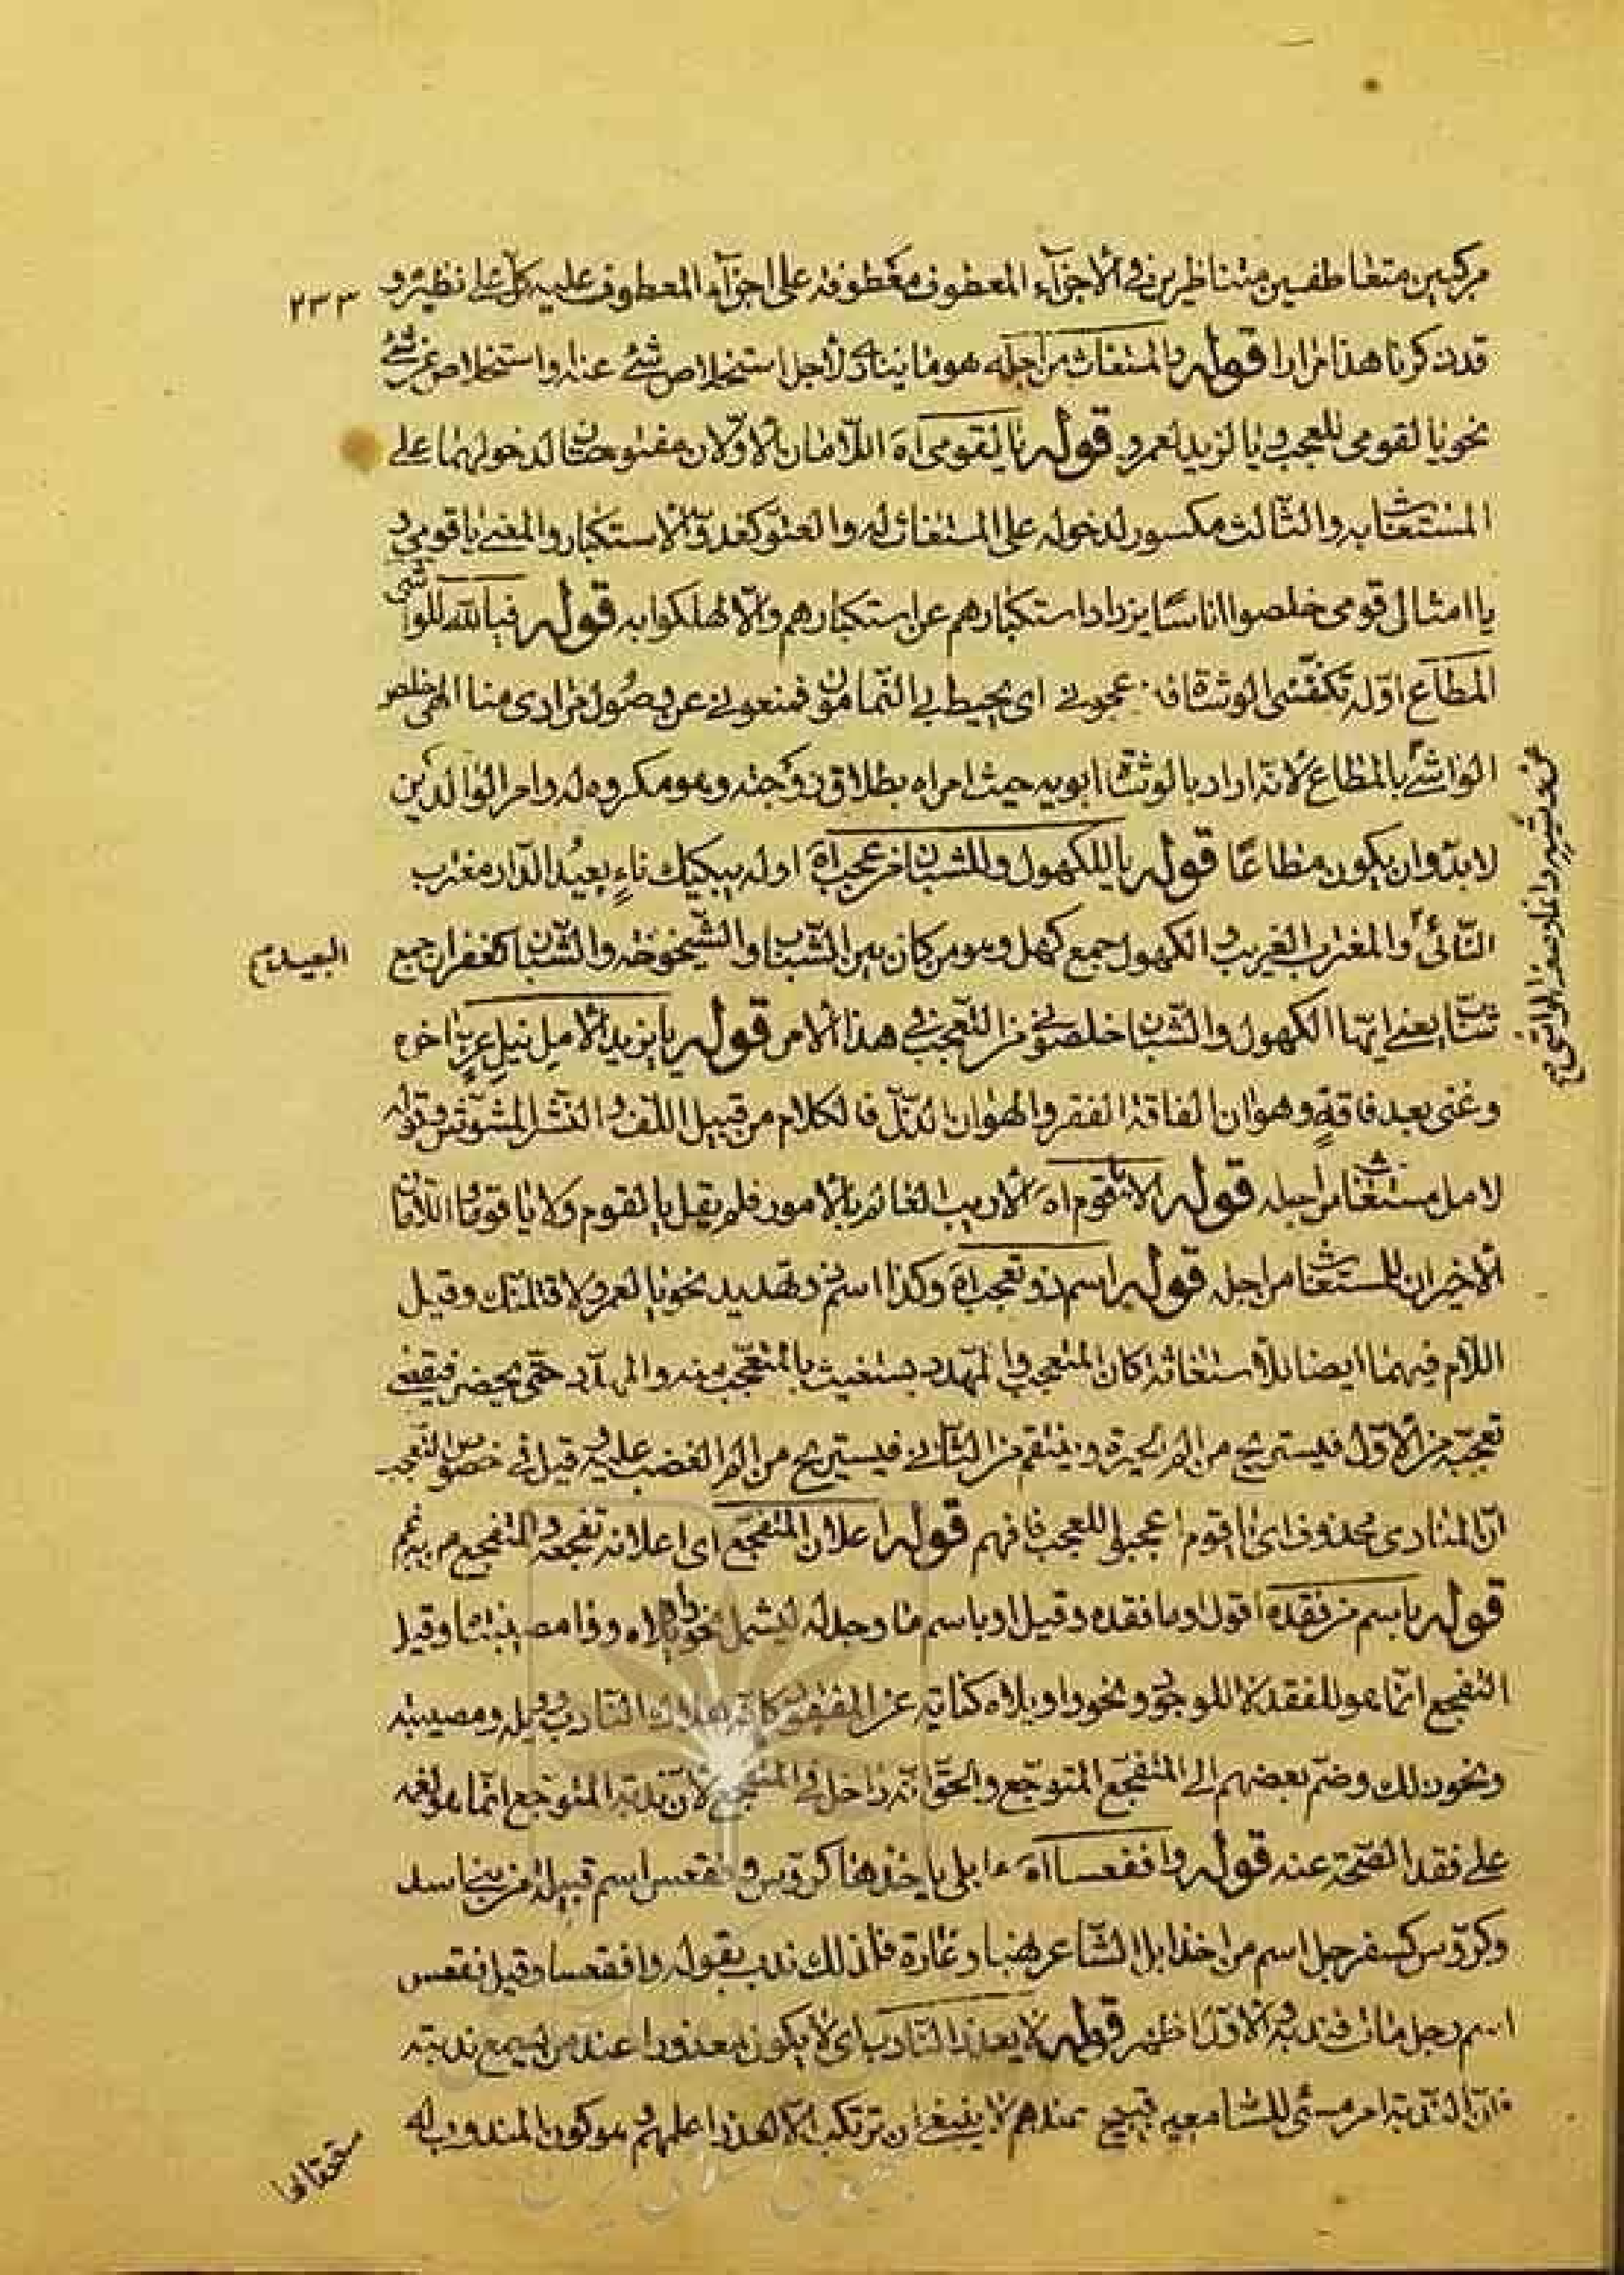 مركبين متعاطفين متناظرين في الأجزاء المعطوف معطوفة على اجزاء المعطوف عليه كل على نظيره و
٢٣٣
قد ذكرنا هذا مرارا قوله والمستغاث من اجله هو ما ينادى لأجل استخلاص شئ عنه او استخلاصه عن شئ
نحو يا لقومى للعجب ويا لزيد لعمرو قوله يا لقومى اه اللامان الاولان مفتوحتان لدخولهما على
المستغاث به والثالث مكسور لدخوله على المستغاث له والعتو كغدو الاستكبار والمعنى يا قومى و
يا امثال قومى خلصوا اناسًا يزداد استكبارهم عن استكبارهم والا لهلكوا به قوله فيا لله للواشى
المطاع اوله تكنفنى الوشاة فازعجونى اى يحيط بى النمامون فمنعونى عن وصول مرادى منا الهى خلص
الواشى بالمطاع لانه اراد بالوشاة ابويه حيث امراه بطلاق زوجته وهو مكروه له وامر الوالدين
لابد وان يكون مطاعًا قوله يا للكهول وللشبان من عجب اه اوله يبكيك ناءٍ بعيد الدار مغترب
النائى والمغترب الغريب والكهول جمع كهل وهو من كان بين الشباب والشيخوخة والشبان كغفران جمع
البعيد
شاب يعنى ايها الكهول والشبان خلصونى من التعجب فى هذا الامر قوله يا يزيدا لامل نيل عز اخره
وغنى بعد فاقةٍ وهوان الفاقة الفقر والهوان الذل فالكلام من قبيل اللف والنشر المشوش وقوله
لامل مستغاث من اجله قوله الا يا قوم اه الاريب العالم بالامور فلم يقل يا لقوم ولا يا قوما واللامان
الاخيران للمستغاث من اجله قوله او اسم ذو تعجب اه وكذا اسم ذو تهديد نحو يا لعمرو لاقتلنك وقيل
اللام فيهما ايضا للاستغاثة كان المتعجب والمهدد يستغيث بالمتعجب منه والمهدد حتى يحضر فيقضى
تعجبه من الاول فيستريح من الم الحيرة وينتقم من الثانى فيستريح من الم الغضب عليه وقيل فى خصوص التعجب
ان المنادى محذوف اى يا قوم اعجبوا للعجب فافهم قوله اعلان المتفجع اى اعلانه تفجعه والمتفجع من به غم
قوله باسم من فقده اقول او ما فقده وقيل او باسم ما وجد له ليشمل نحو واويلاه ووامصيبتا وقيل
التفجع انما هو للفقد لا للوجود ونحو واويلاه كناية عن المفقود كانه ينادى النادب ويله ومصيبته
ونحو ذلك وضم بعضهم الى المتفجع المتوجع والحق انه داخل فى المتفجع لان ندبة المتوجع انما هو لغمه
على فقد الصحة عنه قوله وافقعسا اه ءابلى ياخذها كروس وفقعس اسم قبيلة من بنى اسد
وكروس كسفرجل اسم من اخذ ابل الشاعر نهبا وغارة فلذلك ندب بقوله وافقعسا وقيل فقعس
اسم رجل مات فندب والاول اظهر قوله لا يعذر النادب اى لا يكون معذورا عند من يسمع ندبته
فان الندبة امر مستثنى للسامعين قبيح عندهم لا ينبغى ان ترتكب الا لعذر اعلمهم وهو كون المندوب له